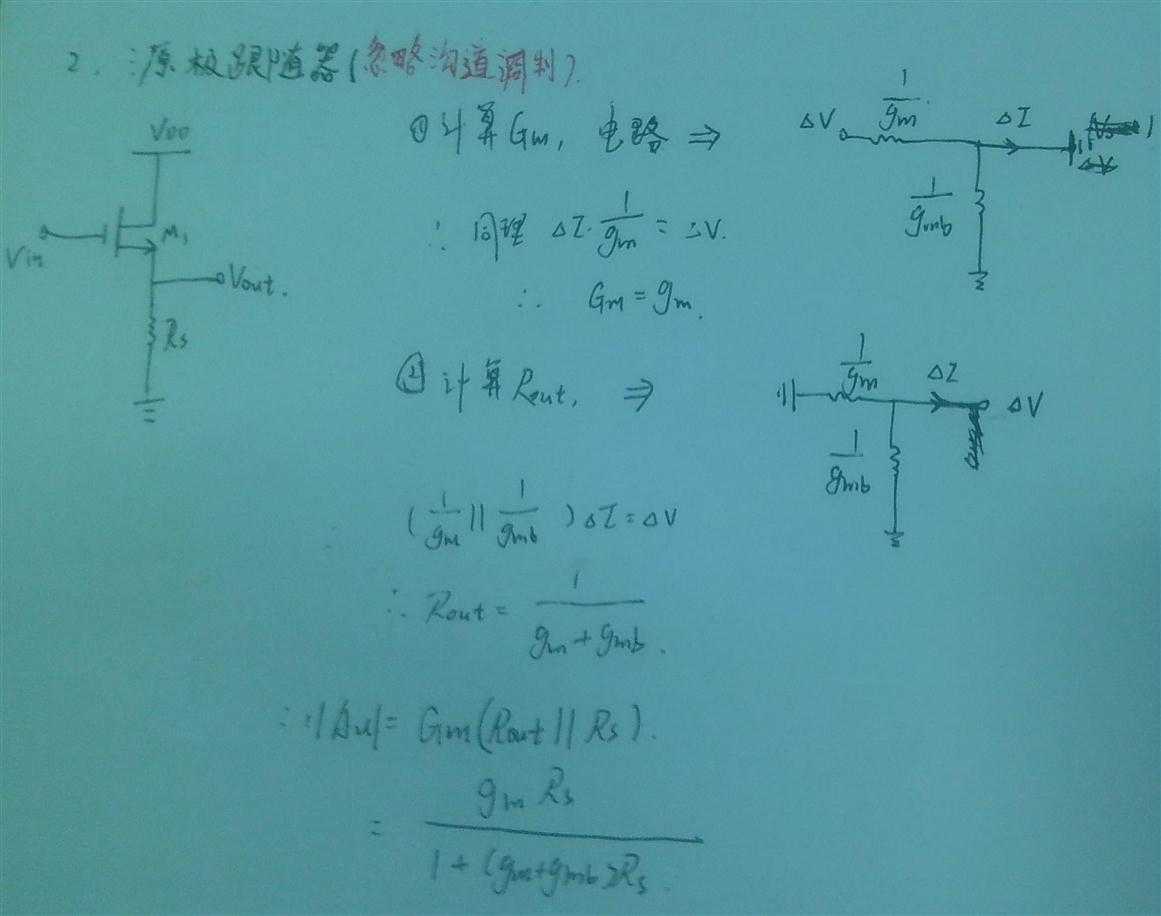 2. 源极跟随器(忽略沟道调制).
VDD
Vin
M1
Vout.
Rs
①计算Gm, 电路 ⇒
ΔV
1/gm
ΔI
1/gmb
∴ 同理 ΔI·1/gm = ΔV.
∴ Gm = gm.
②计算Rout, ⇒
1/gm
ΔI
ΔV
1/gmb
(1/gm || 1/gmb)ΔI = ΔV
∴ Rout = 1/(gm+gmb).
∴ |Au| = Gm(Rout || Rs).
= gmRs/(1+(gm+gmb)Rs.